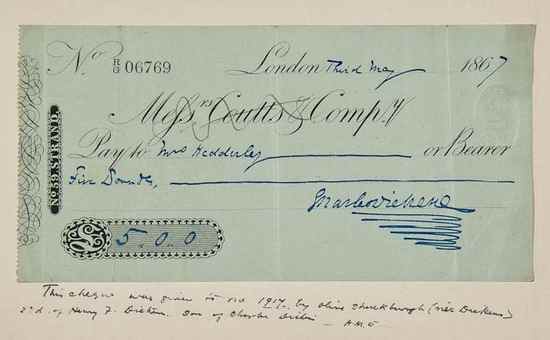 No R/G 06769 London Third May 1867
Messrs Coutts & Compy
Pay to Mrs Hedderley or Bearer
Five Pounds
No. 59, STRAND.
Charles Dickens
£ 5.0.0
This cheque was given to me 1917. by Olive Shuckburgh (née Dickens)
2nd d. of Henry F. Dickens. Son of Charles Dickens —